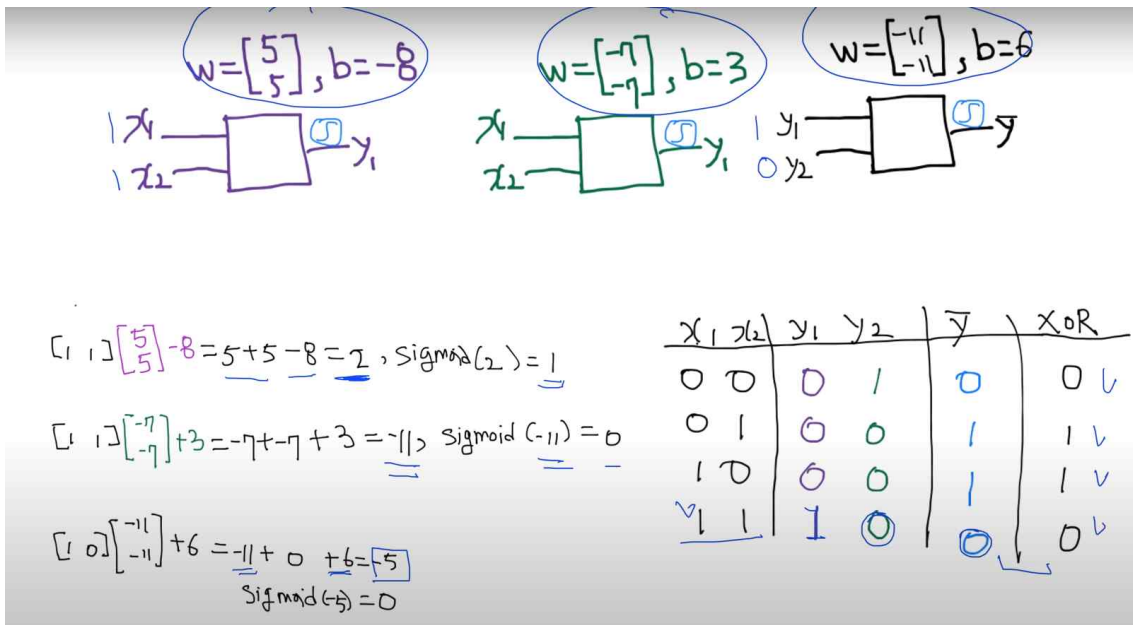 w=[5 5], b=-8
w=[-7 -7], b=3
w=[-11 -11], b=6
1 x1 S y1
1 x2
x1 S y1
x2
1 y1 S ȳ
0 y2
[1 1][5 5]-8=5+5-8=2, sigmoid(2)=1
[1 1][-7 -7]+3=-7+-7+3=-11, sigmoid(-11)=0
[1 0][-11 -11]+6=-11+0+6=-5
sigmoid(-5)=0
x1 x2 y1 y2 ȳ XOR
0 0 0 1 0 0
0 1 0 0 1 1
1 0 0 0 1 1
1 1 1 0 0 0